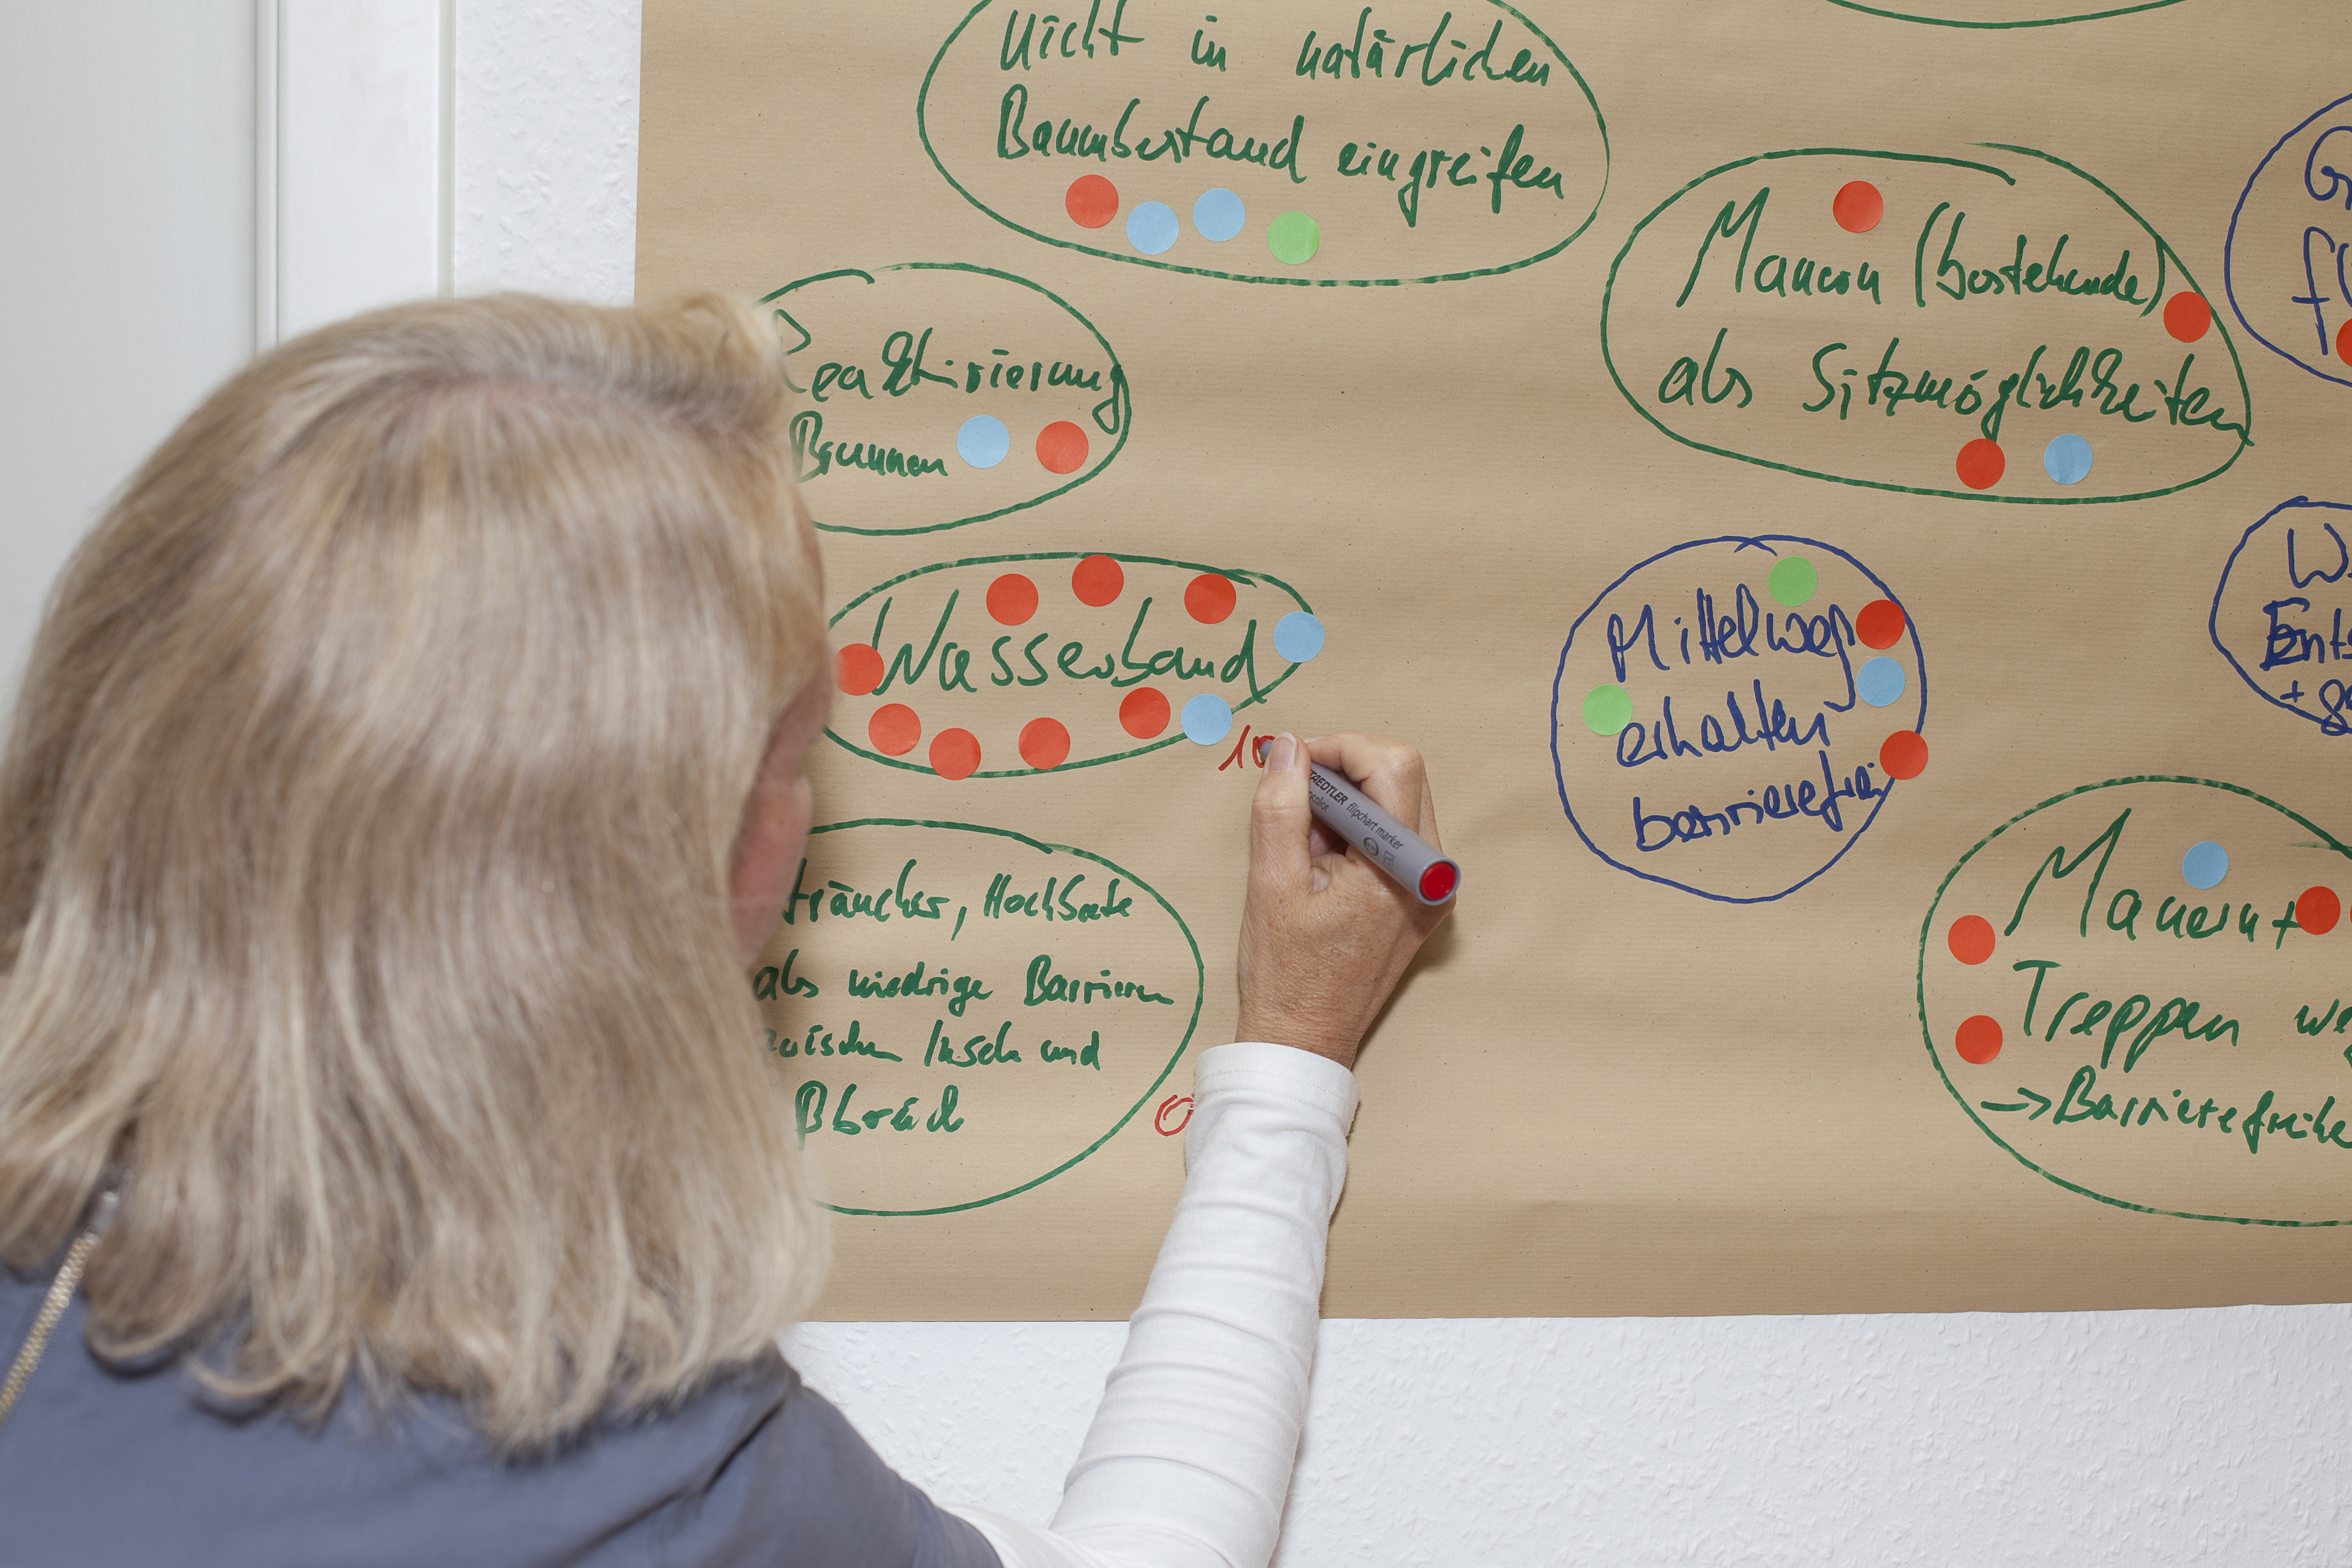 nicht in natürlichen
Baumbestand eingreifen
Mauern (bestehende)
als Sitzmöglichkeiten
Reaktivierung
Brunnen
Wasserband
10
Mittelweg
erhalten
barrierefrei
träucher, Hochbeete
als niedrige Barrieren
zwischen Insch und
ßbräch
0
Mauern +
Treppen we
-> Barrierefreihe
G
f
W
Ent
+
STAEDTLER flipchart marker